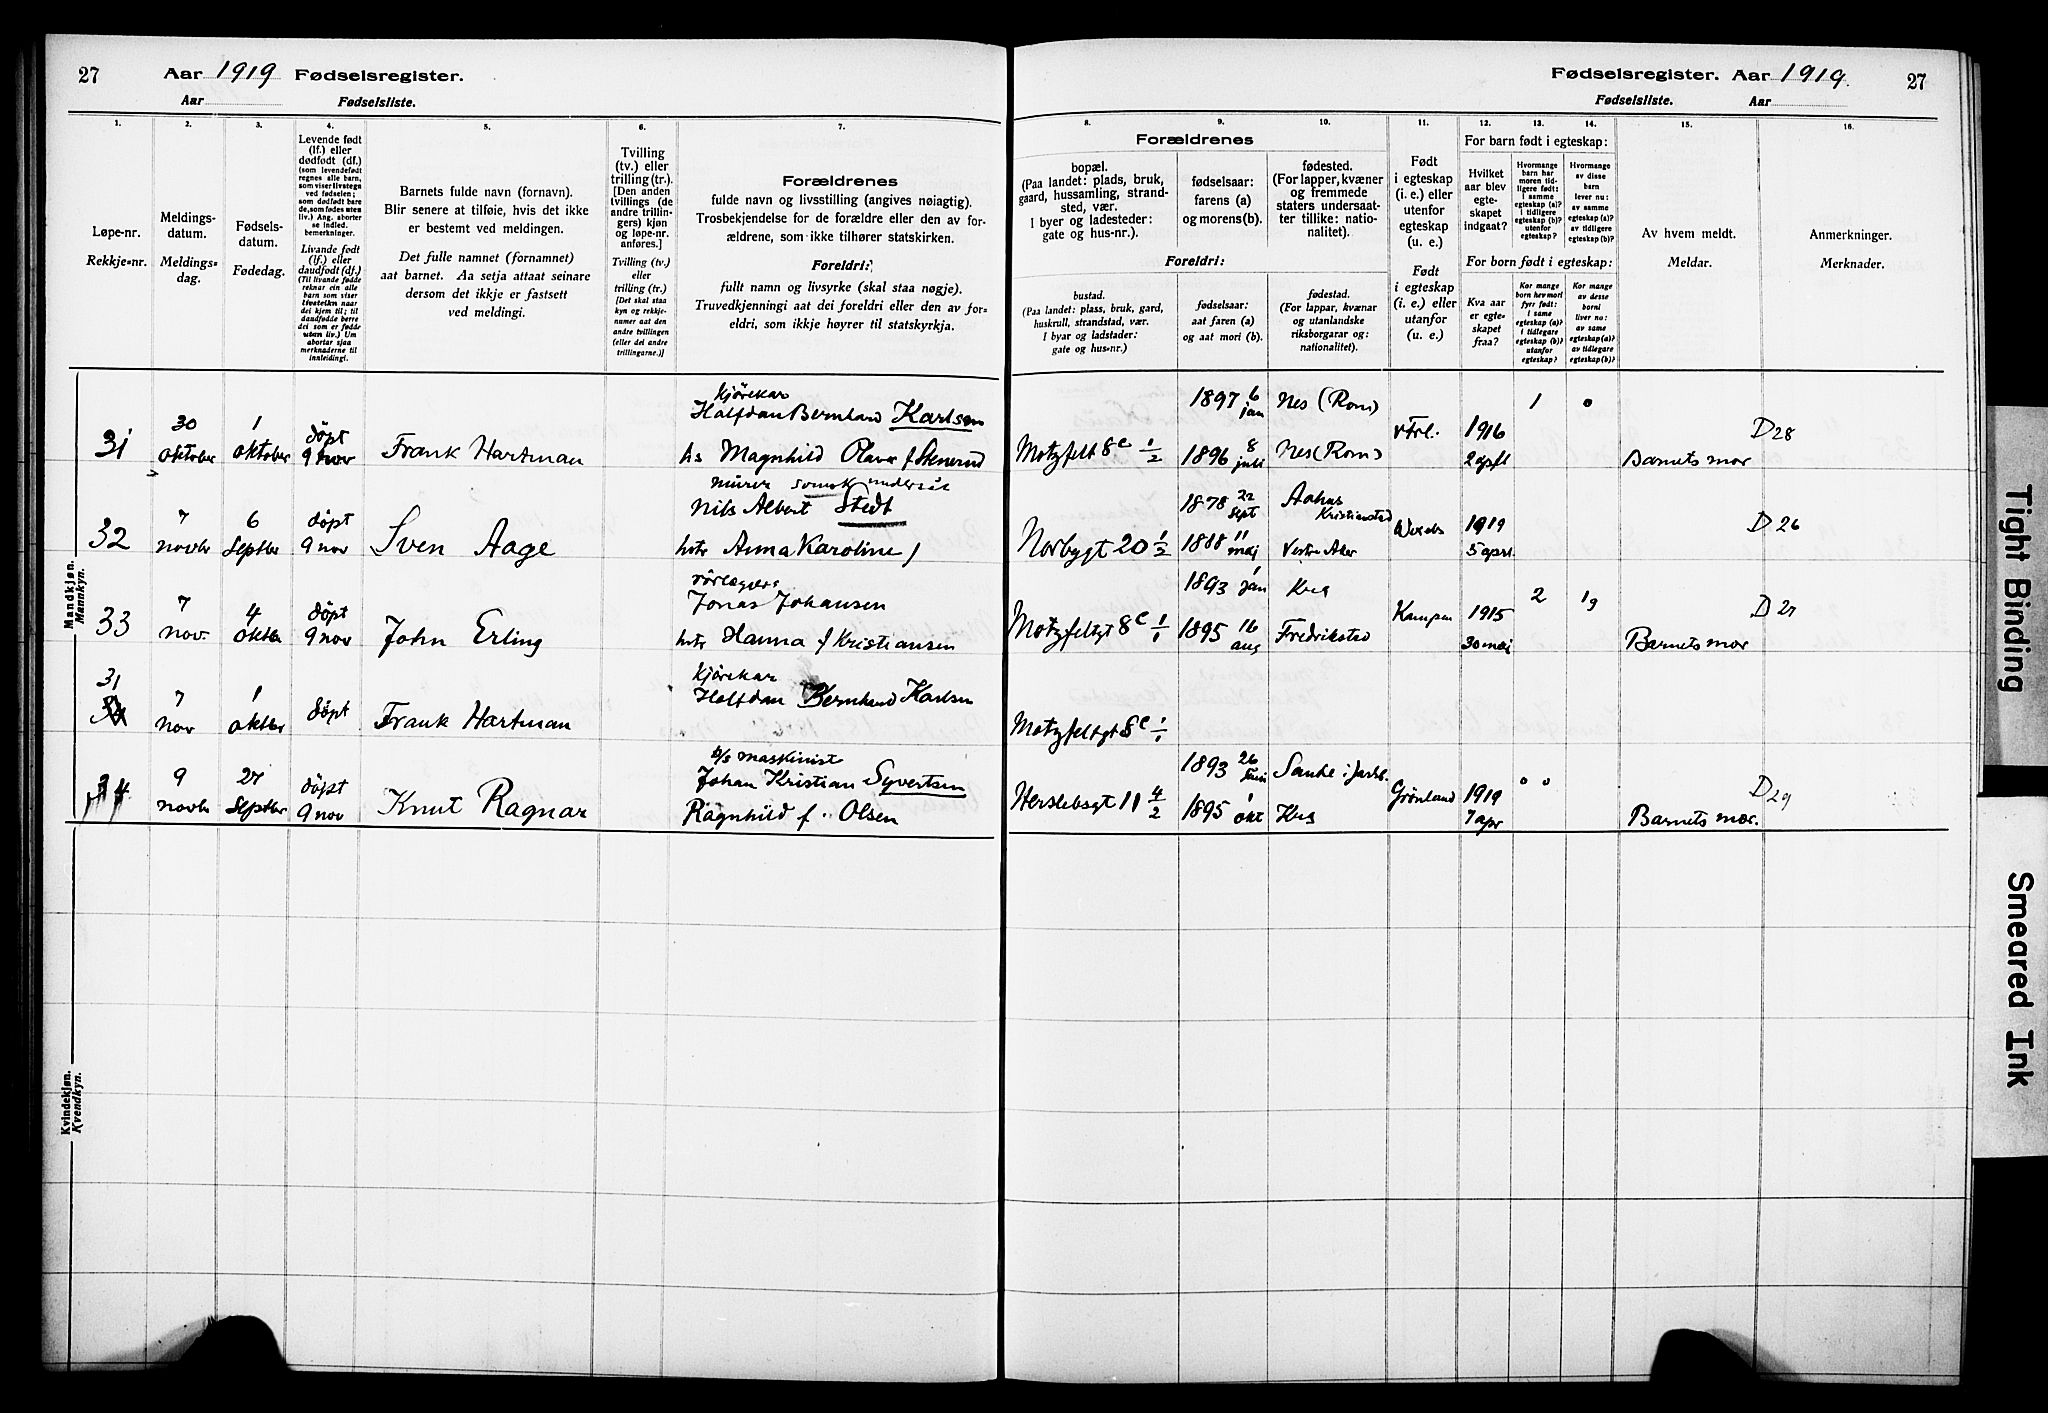 27 Aar 1919 Fødselsregister.
Aar Fødselsliste.
Fødselsregister. Aar 1919. 27
Fødselsliste. Aar
1. 2. 3. 4. 5. 6. 7.
Løpe-nr.
Rekkje-nr.
Meldings-
datum.
Meldings-
dag.
Fødsels-
datum.
Fødedag.
Levende født
(lf.) eller
dødfødt (df.)
(som levendefødt
regnes alle barn,
som viser livstegn
ved fødselen;
som dødfødt bare
de, som fødes uten
liv.) Ang. aborter
se indled.
bemerkninger.
Livande født
(lf.) eller
daudfødt (df.)
(Til livande fødde
reknar ein alle
born som viser
livsteikn naar
dei kjem til; til
daudfødde berre
dei som er fødde
utan liv.) Um
abortar sjaa
merknaderne til
innleidingi.
Barnets fulde navn (fornavn).
Blir senere at tilføie, hvis det ikke
er bestemt ved meldingen.
Det fulle namnet (fornamnet)
aat barnet. Aa setja attaat seinare
dersom det ikkje er fastsett
ved meldingi.
Tvilling
(tv.) eller
trilling (tr.).
[Den anden
tvillings (de
andre trillin-
gers) kjøn
og løpe-nr.
anføres.]
Tvilling (tv.)
eller
trilling (tr.)
[Det skal staa
kyn og rekkje-
numer aat den
andre tvillingen
(eller dei andre
trillingarne.)]
Forældrenes
fulde navn og livsstilling (angives nøiagtig).
Trosbekjendelse for de forældre eller den av for-
ældrene, som ikke tilhører statskirken.
Foreldri:
fullt namn og livsyrke (skal staa nøgje).
Truvedkjenningi aat dei foreldri eller den av for-
eldri, som ikkje høyrer til statskyrkja.
8. 9. 10. 11. 12. 13. 14. 15. 16.
Forældrenes
bopæl.
(Paa landet: plads, bruk,
gaard, hussamling, strand-
sted, vær.
I byer og ladesteder:
gate og hus-nr.).
fødselsaar:
farens (a)
og morens (b).
fødested.
(For lapper, kvæner
og fremmede
staters undersaat-
ter tillike: natio-
nalitet).
Foreldri:
bustad.
(Paa landet: plass, bruk, gard,
huskrull, strandstad, vær.
I byar og ladstader:
gate og hus-nr.)
fødselsaar:
aat faren (a)
og aat mori (b).
fødestad.
(For lappar, kvænar
og utanlandske
riksborgarar og:
nationalitet).
Født
i egteskap
(i. e.) eller
utenfor
egteskap
(u. e.)
Født
i egteskap
(i. e.) eller
utanfor
(u. e.)
For barn født i egteskap:
Hvilket
aar blev
egte-
skapet
indgaat?
Hvormange
barn har
moren tid-
ligere født:
i samme
egteskap (a)?
i tidligere
egteskap (b)?
utenfor
egteskap?
Hvormange
av disse
barn
lever nu:
av samme
egteskap (a)?
av tidligere
egteskap (b)?
For born født i egteskap:
Kva aar
er egte-
skapet
fraa?
Kor mange
born hev mori
fyrr født:
i same
egteskap (a)?
i tidlegare
egteskap (b)?
utanfor
egteskap?
Kor mange
av desse
borni
liver no:
av same
egteskap (a)?
av tidlegare
egteskap (b)?
Av hvem meldt.
Meldar.
Anmerkninger.
Merknader.
Mandkjøn.
Mannkyn.
31 30 oktober 1 oktober døpt 9 nov Frank Hartman
kjørekar
Halfdan Bernhard Karlsen
hs Magnhild Olava f Stenerud
Motzfelt 8c 1/2
1897 6 jan Nes (Rom)
1896 8 juli Nes (Rom)
1916 2 april 1 0 Barnets mor D 28
32 7 novbr 6 septbr døpt 9 nov Sven Aage
murer svensk undersåt
Nils Albert Stedt
hstr Anna Karoline f
Norbygt 20 1/2
1878 22 sept Aahus Kristianstad
1888 11 maj Vestre Aker
1919 5 april D 26
33 7 nov. 4 oktbr døpt 9 nov John Erling
rørlægger
Jonas Johansen
hstr Hanna f Kristiansen
Motzfeltgt 8c 1/1
1893 1 jan Kra
1895 16 aug Fredrikstad
Kampen 1915 30 mai 2 1g Barnets mor D 27
31 7 nov 1 oktbr døpt Frank Hartman
kjørekar
Halfdan Bernhard Karlsen
Motzfeltgt 8c 1/1
34 9 novbr 27 septbr døpt 9 nov Knut Ragnar
maskinist
Johan Kristian Syvertsen
Ragnhild f. Olsen
Herslebsgt 11 4/2
1893 26 juni
1895 1 okt Kra
Grønland 1919 7 apr 0 0 Barnets mor. D 29
Kvindekjøn.
Kvendkyn.
Tight Binding
Smeared Ink